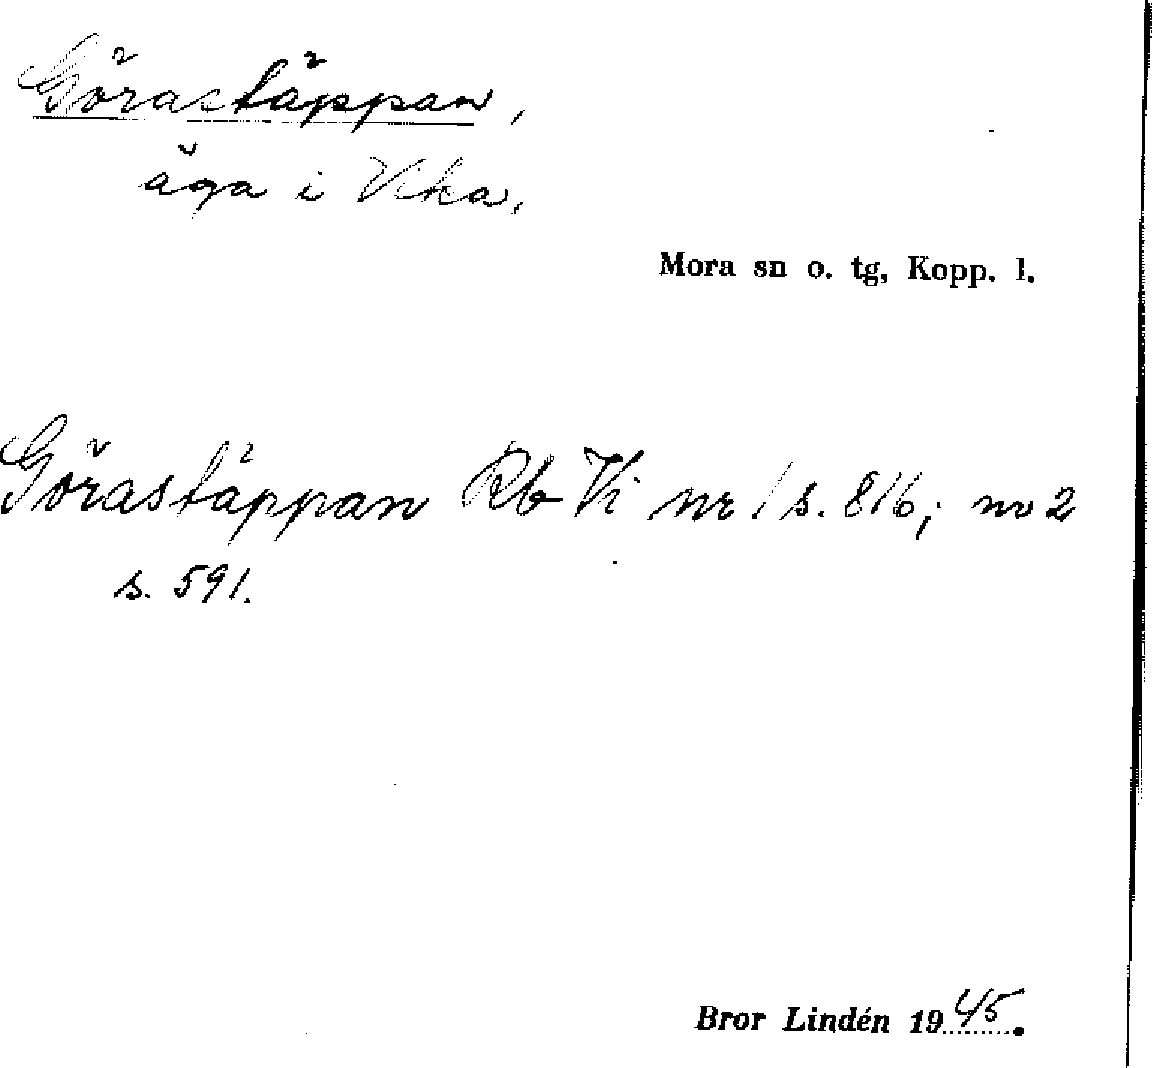 Görastäppan,
äga i Vika.
Mora sn o. tg, Kopp. l.
Görastäppan Rb Vi nr 1 s. 816; nr 2
s. 591.
Bror Lindén 1945.